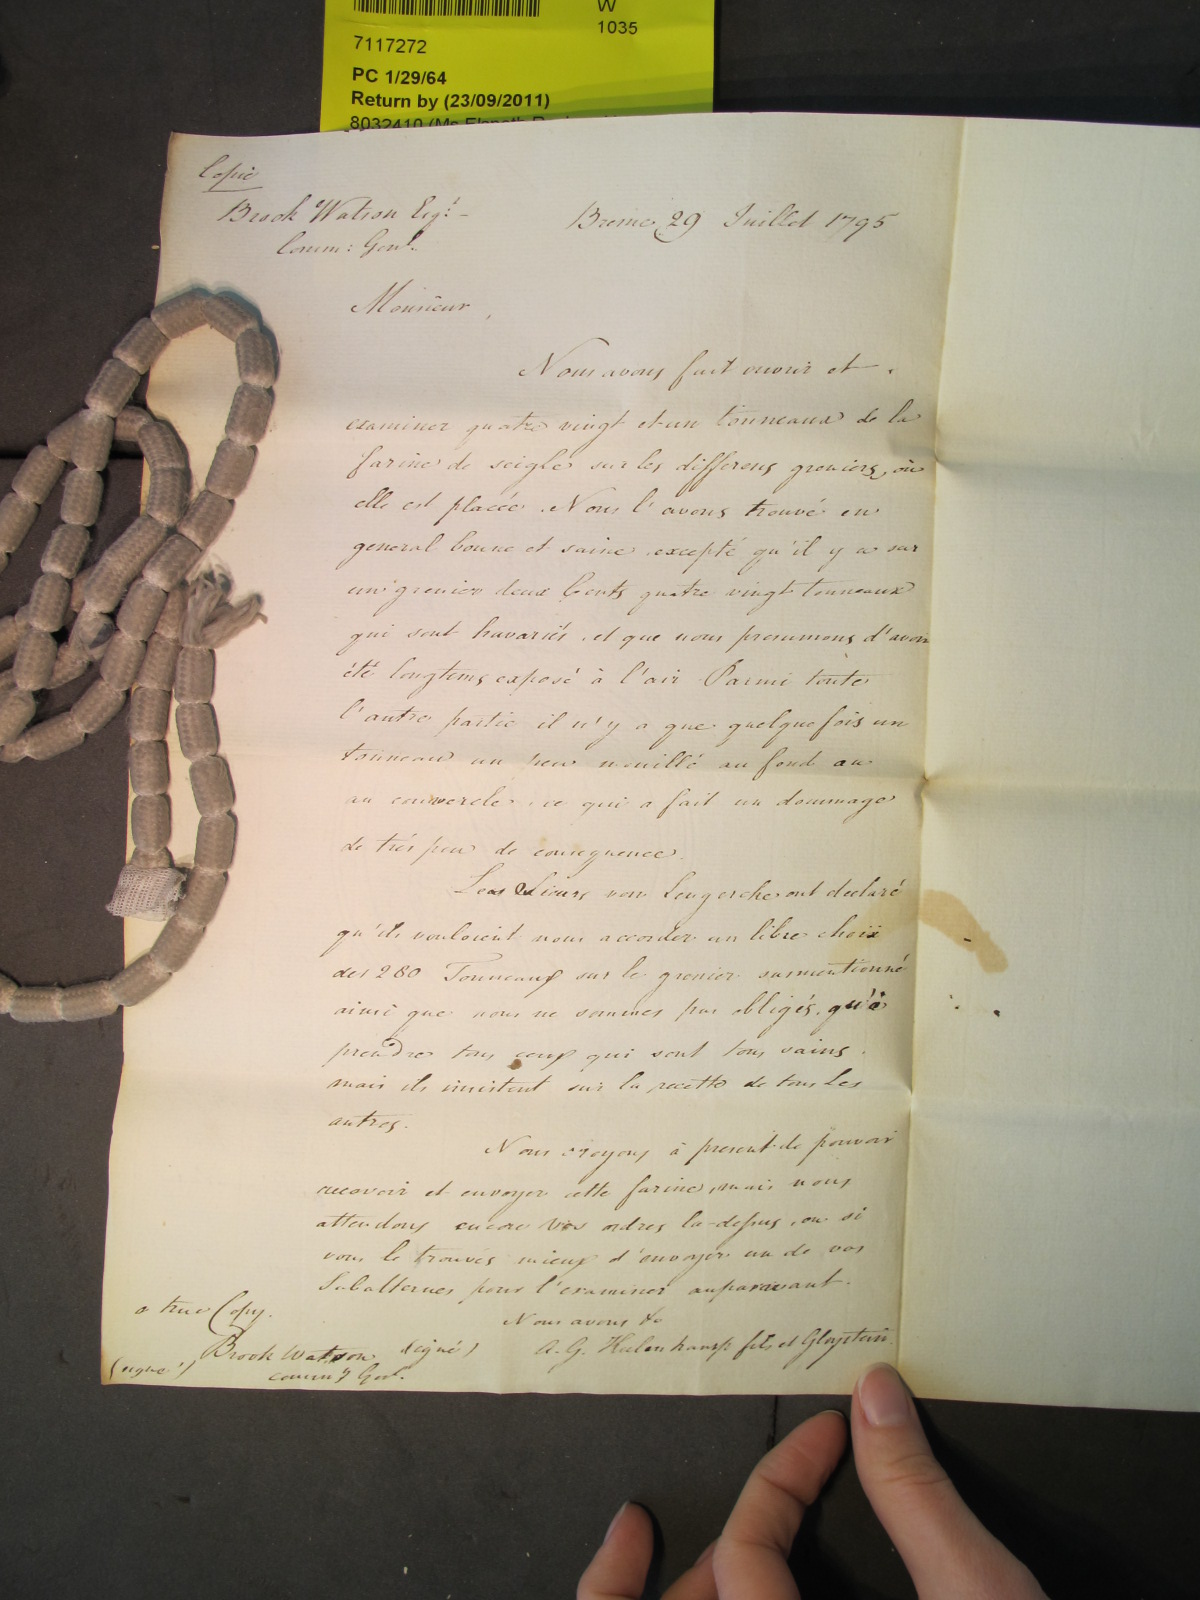 W
1035
7117272
PC 1/29/64
Return by (23/09/2011)
8032410 (Ms
Copie
Brook Watson Esqr.
Comm: Genl.
Breme 29 Juillet 1795
Monsieur,
Nous avons fait ouvrir et
examiner quatre vingt et un tonneaux de la
farine de seigle sur les differens greniers, où
elle est placée. Nous l'avons trouvé en
general bonne et saine excepté qu'il y a sur
un grenier deux Cents quatre vingt tonneaux
qui sont havariés, et que nous presumons d'avoir
été longtems exposé à l'air Parmi toute
l'autre partie il n'y a que quelque fois un
tonneau un peu mouillé au fond ou
au couvercle, ce qui a fait un dommage
de trés peu de consequence.
Les Sieurs von Lengerke ont declaré
qu'ils vouloient nous accorder un libre choix
des 280 Tonneaux sur le grenier susmentionné
ainsi que nous ne sommes pas obligés, qu'à
prendre tous ceux qui sont tous sains.
mais ils insistent sur la recette de tous les
autres.
Nous croyons à present de pouvoir
recevoir et envoyer cette farine, mais nous
attendons encore vos ordres la-dessus, ou si
vous le trouvés mieux d'envoyer un de vos
Subalternes pour l'examiner auparavant.
Nous avons &c
(signé) A. G. fils et Gloystein.
a true Copy.
(signé) Brook Watson
Commy Genl.